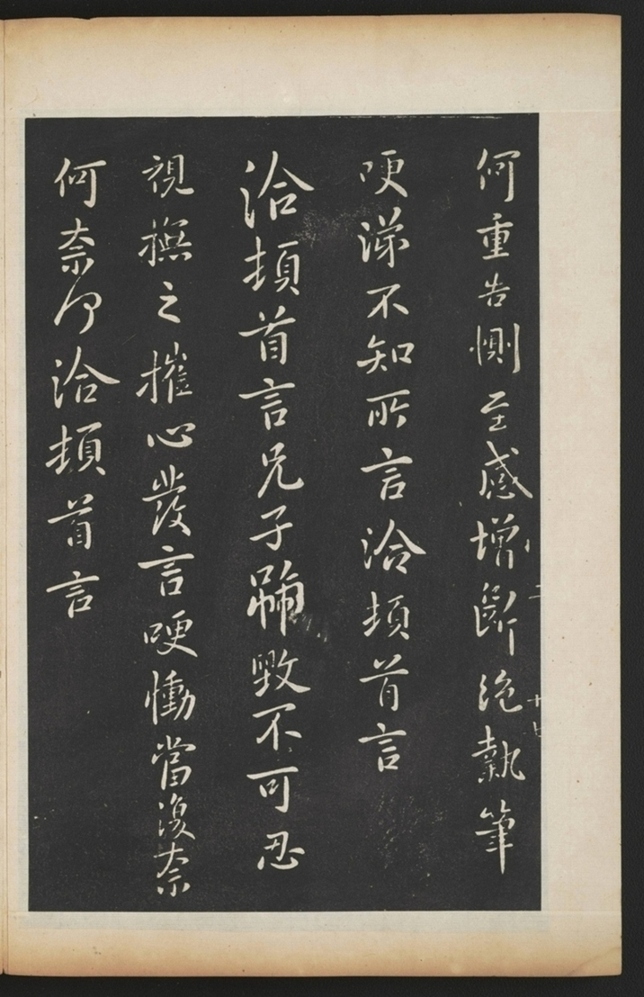 何重告惻至感增斷絶執筆
哽涕不知所言洽頓首言
洽頓首言兄子號毀不可忍
視撫之摧心發言哽慟當復奈
何奈何洽頓首言